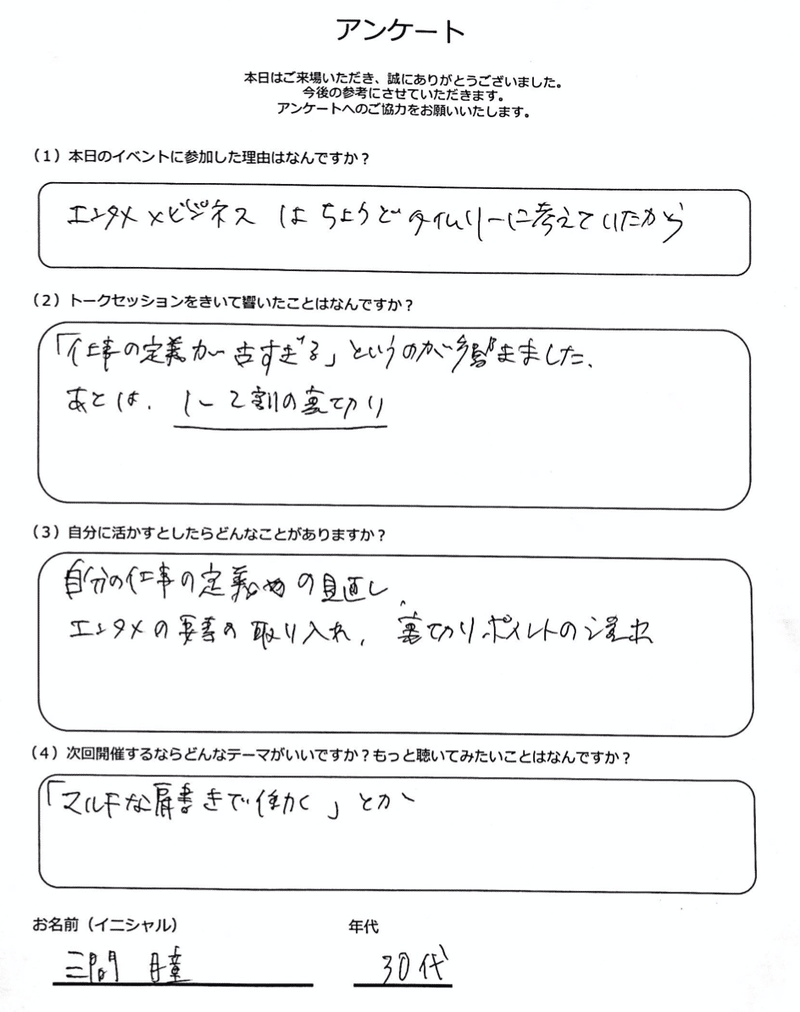 アンケート
本日はご来場いただき、誠にありがとうございました。
今後の参考にさせていただきます。
アンケートへのご協力をお願いいたします。
（1）本日のイベントに参加した理由はなんですか？
エンタメ×ビジネス はちょうどタイムリーに考えていたから
（2）トークセッションをきいて響いたことはなんですか？
「仕事の定義が古すぎる」というのが響きました。
あとは、1〜2割の裏切り
（3）自分に活かすとしたらどんなことがありますか？
自分の仕事の定義の見直し
エンタメの要素の取り入れ、裏切りポイントの
（4）次回開催するならどんなテーマがいいですか？もっと聴いてみたいことはなんですか？
「マルチな肩書きで働く」とか
お名前（イニシャル）
年代
三間 瞳
30代